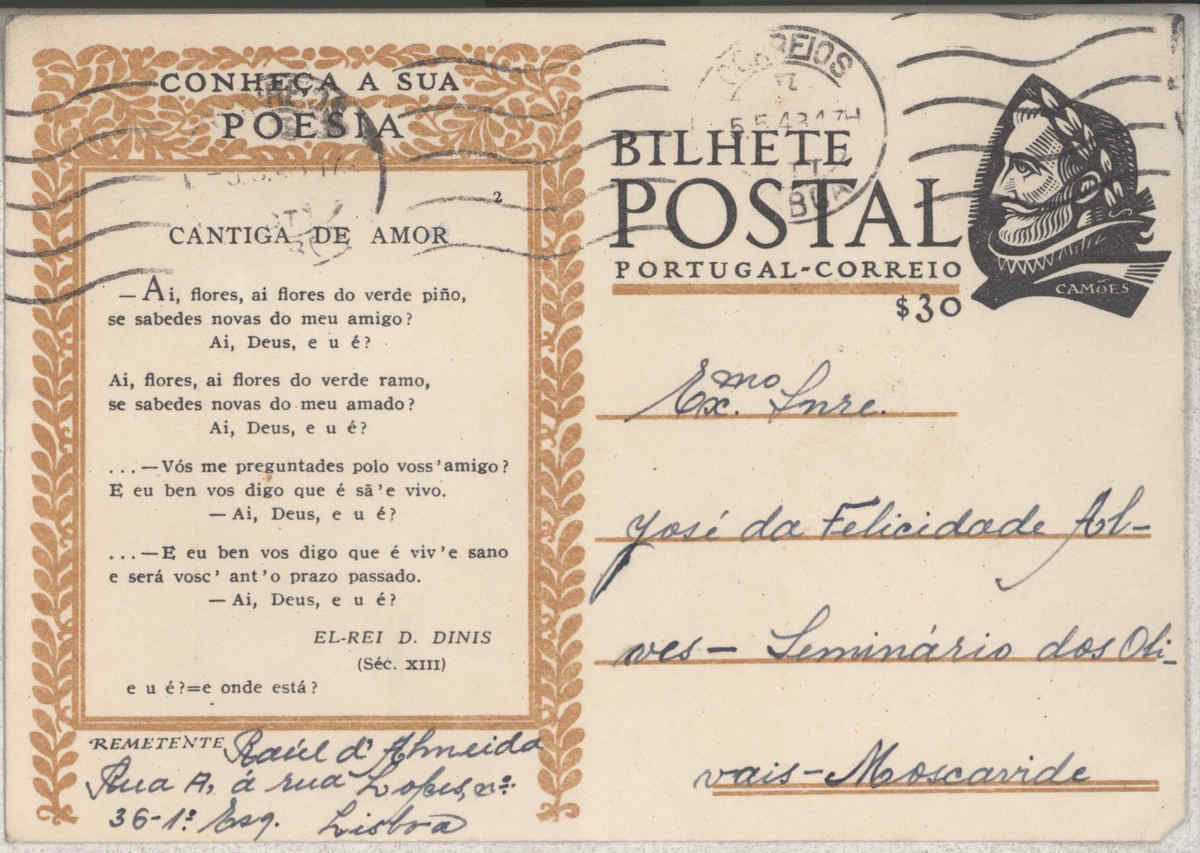 CONHEÇA A SUA
POESIA
2
CANTIGA DE AMOR
—Ai, flores, ai flores do verde piño,
se sabedes novas do meu amigo?
Ai, Deus, e u é?
Ai, flores, ai flores do verde ramo,
se sabedes novas do meu amado?
Ai, Deus, e u é?
...—Vós me preguntades polo voss'amigo?
E eu ben vos digo que é sã'e vivo.
—Ai, Deus, e u é?
...—E eu ben vos digo que é viv'e sano
e será vosc' ant'o prazo passado.
—Ai, Deus, e u é?
EL-REI D. DINIS
(Séc. XIII)
e u é?=e onde está?
REMETENTE Raúl d'Almeida
Rua A, á rua Lopes, nº.
36-1º Esq. Lisboa
CORREIOS
5.5.43.17H
BILHETE
POSTAL
PORTUGAL-CORREIO
$30
CAMÕES
Exmo. Snre.
José da Felicidade Al-
ves — Seminário dos Oli-
vais - Moscavide